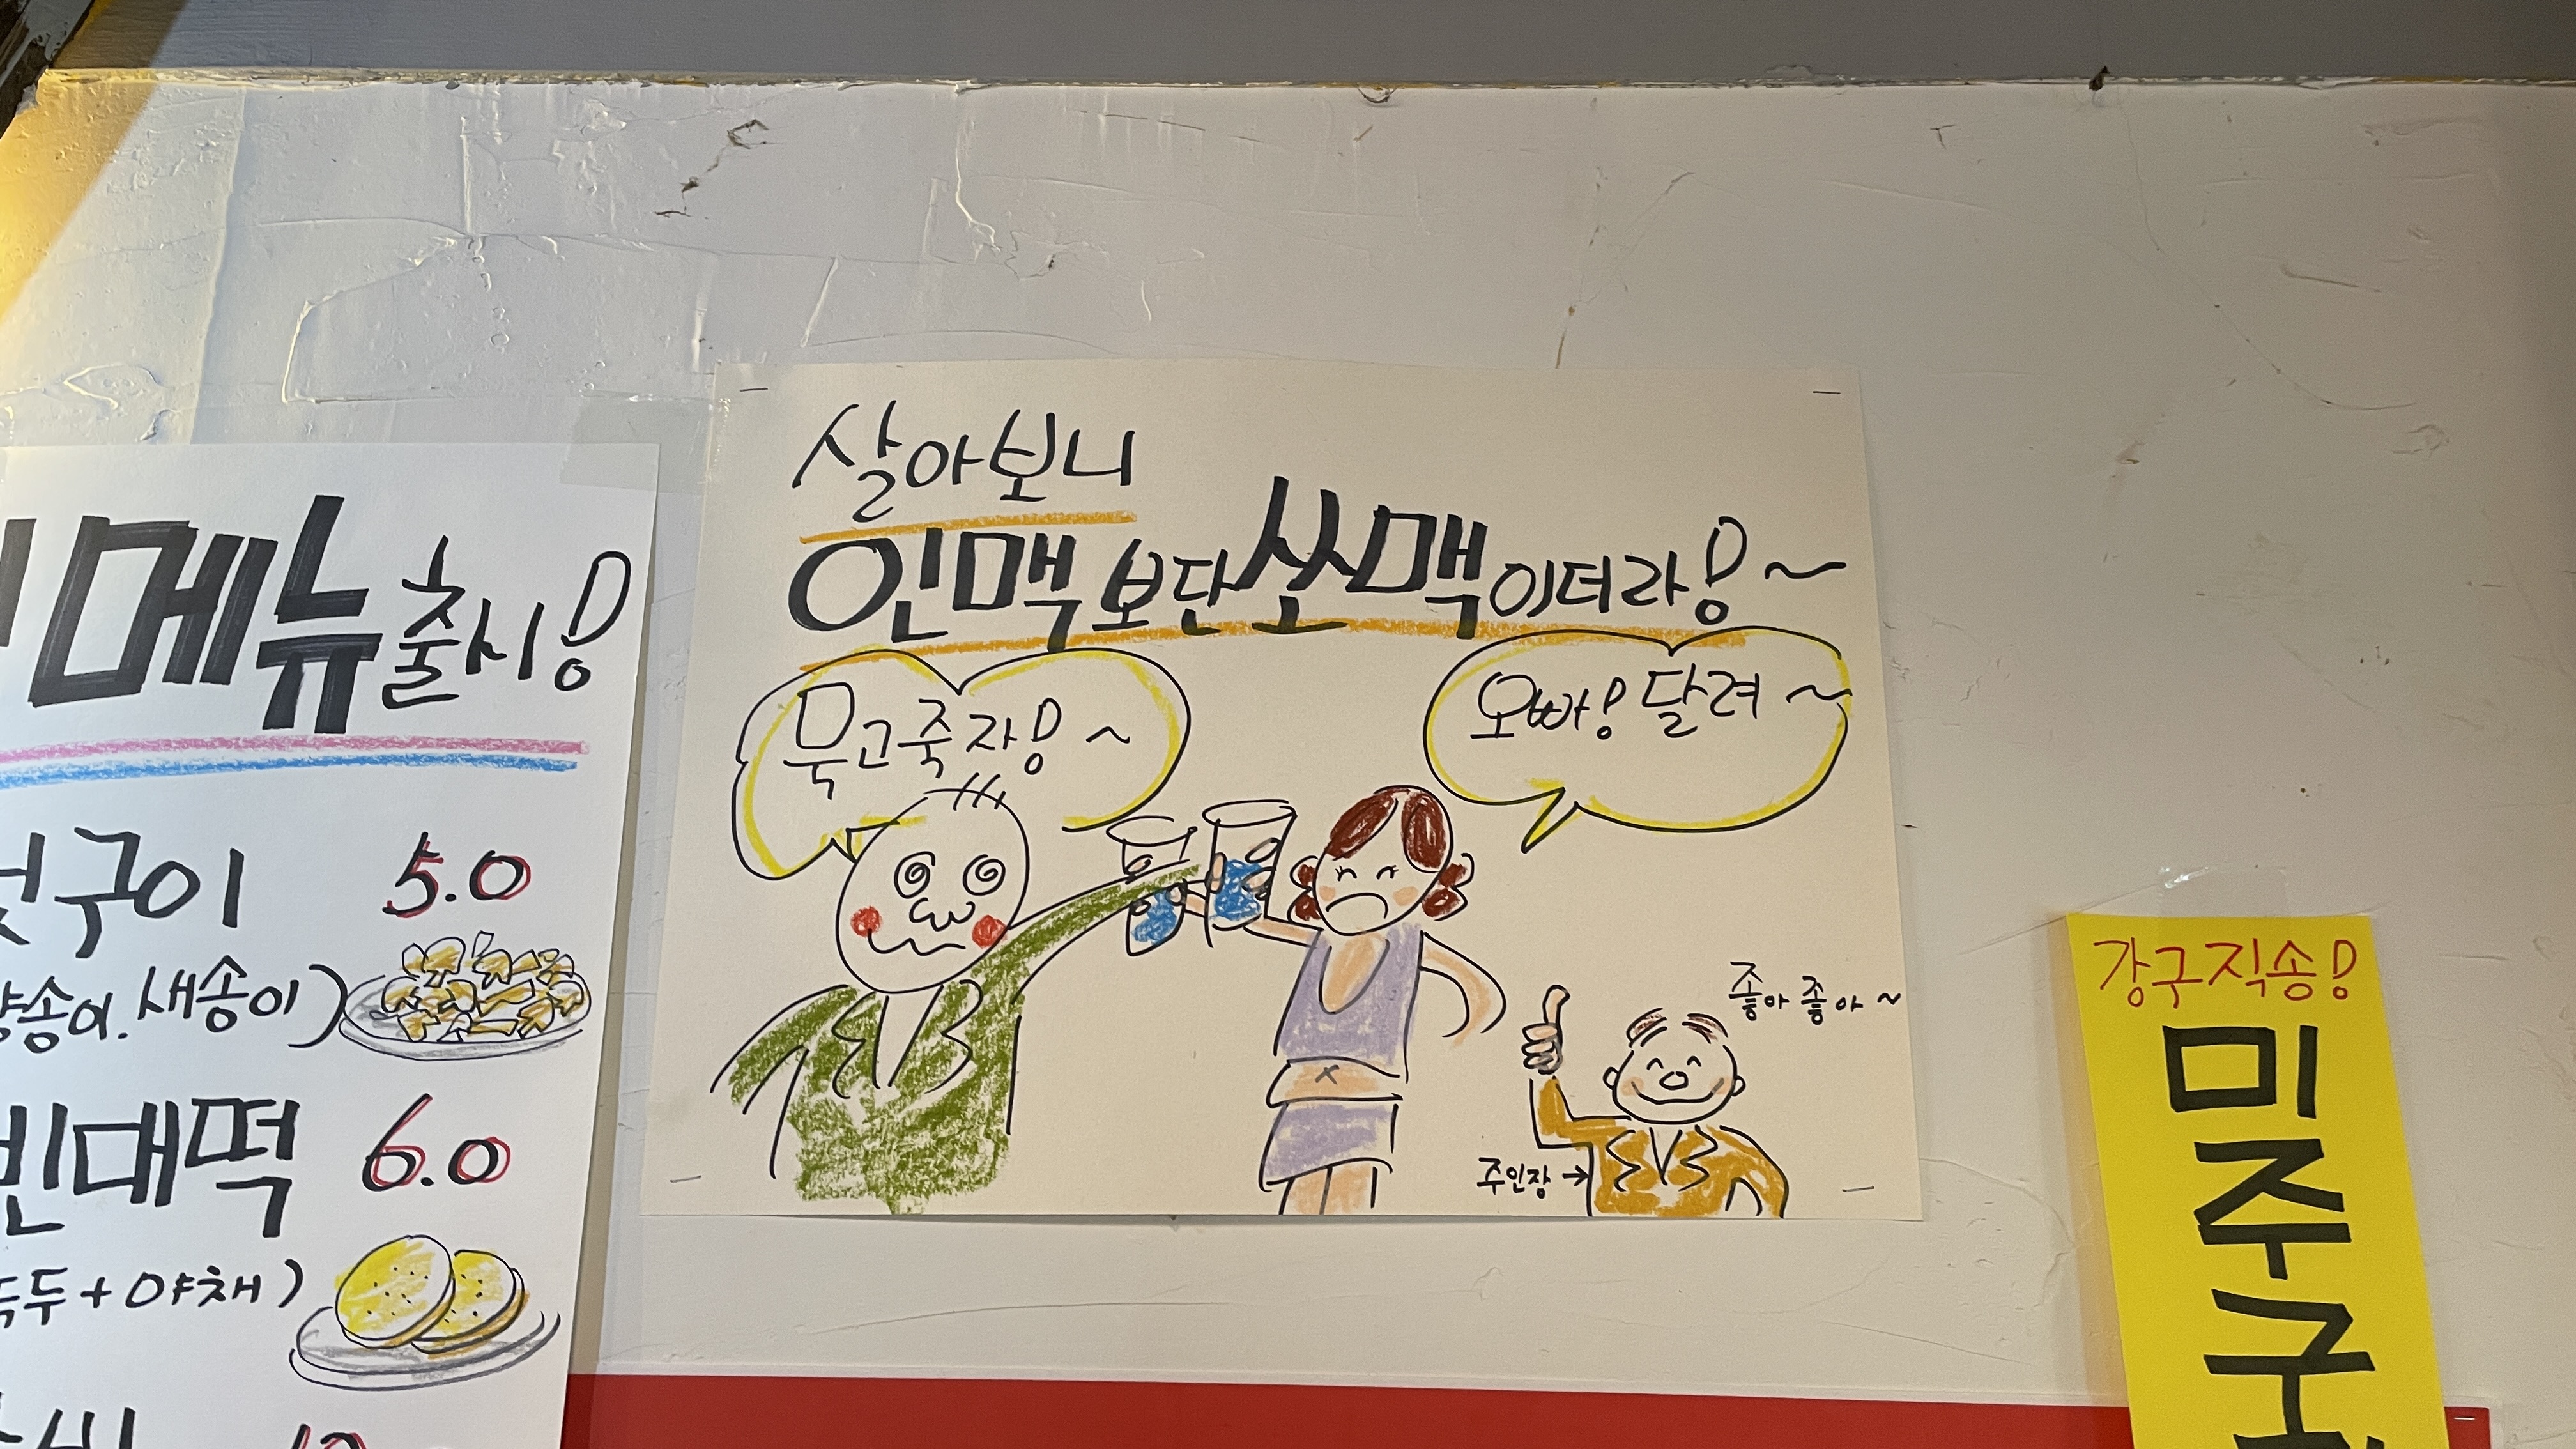 메뉴 출시!
구이 5.0
송이. 새송이)
빈대떡 6.0
녹두+야채)
살아보니
인맥보단 쏘맥이더라!~
묵고죽자!~
오빠! 달려~
좋아 좋아~
주인장→
강구직송!
미주구